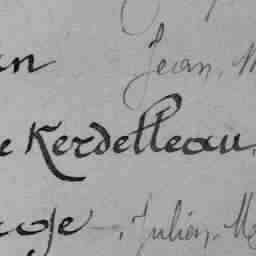 Jean, M
e Kerdelleau,
Julien, M